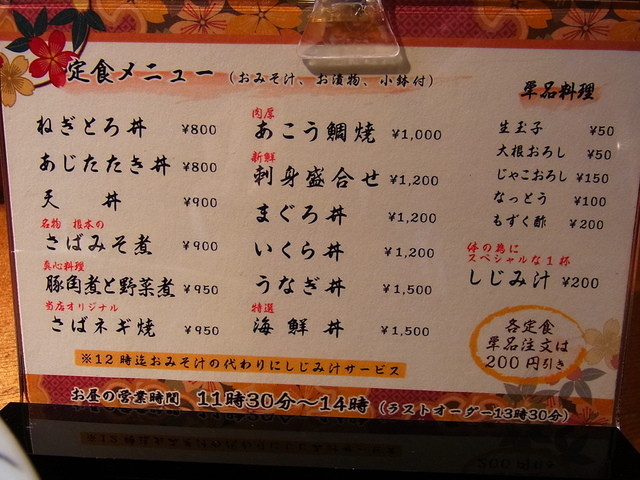 定食メニュー (おみそ汁、お漬物、小鉢付)
ねぎとろ丼 ¥800
あじたたき丼 ¥800
天 丼 ¥900
名物 根本の
さばみそ煮 ¥900
真心料理
豚角煮と野菜煮 ¥950
当店オリジナル
さばネギ焼 ¥950
肉厚
あこう鯛焼 ¥1,000
新鮮
刺身盛合せ ¥1,200
まぐろ丼 ¥1,200
いくら丼 ¥1,200
うなぎ丼 ¥1,500
特選
海鮮丼 ¥1,500
単品料理
生玉子 ¥50
大根おろし ¥50
じゃこおろし ¥150
なっとう ¥100
もずく酢 ¥200
体の為に
スペシャルな1杯
しじみ汁 ¥200
各定食
単品注文は
200円引き
※12時迄おみそ汁の代わりにしじみ汁サービス
お昼の営業時間 11時30分〜14時 (ラストオーダー13時30分)